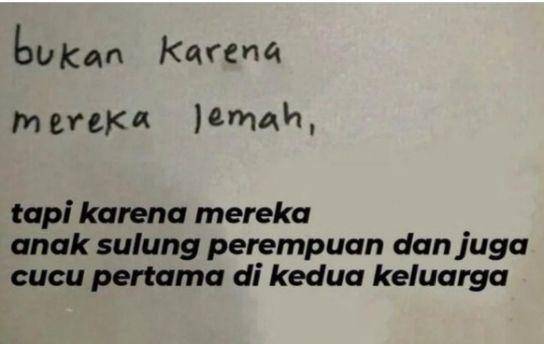 bukan karena
mereka lemah,
tapi karena mereka
anak sulung perempuan dan juga
cucu pertama di kedua keluarga